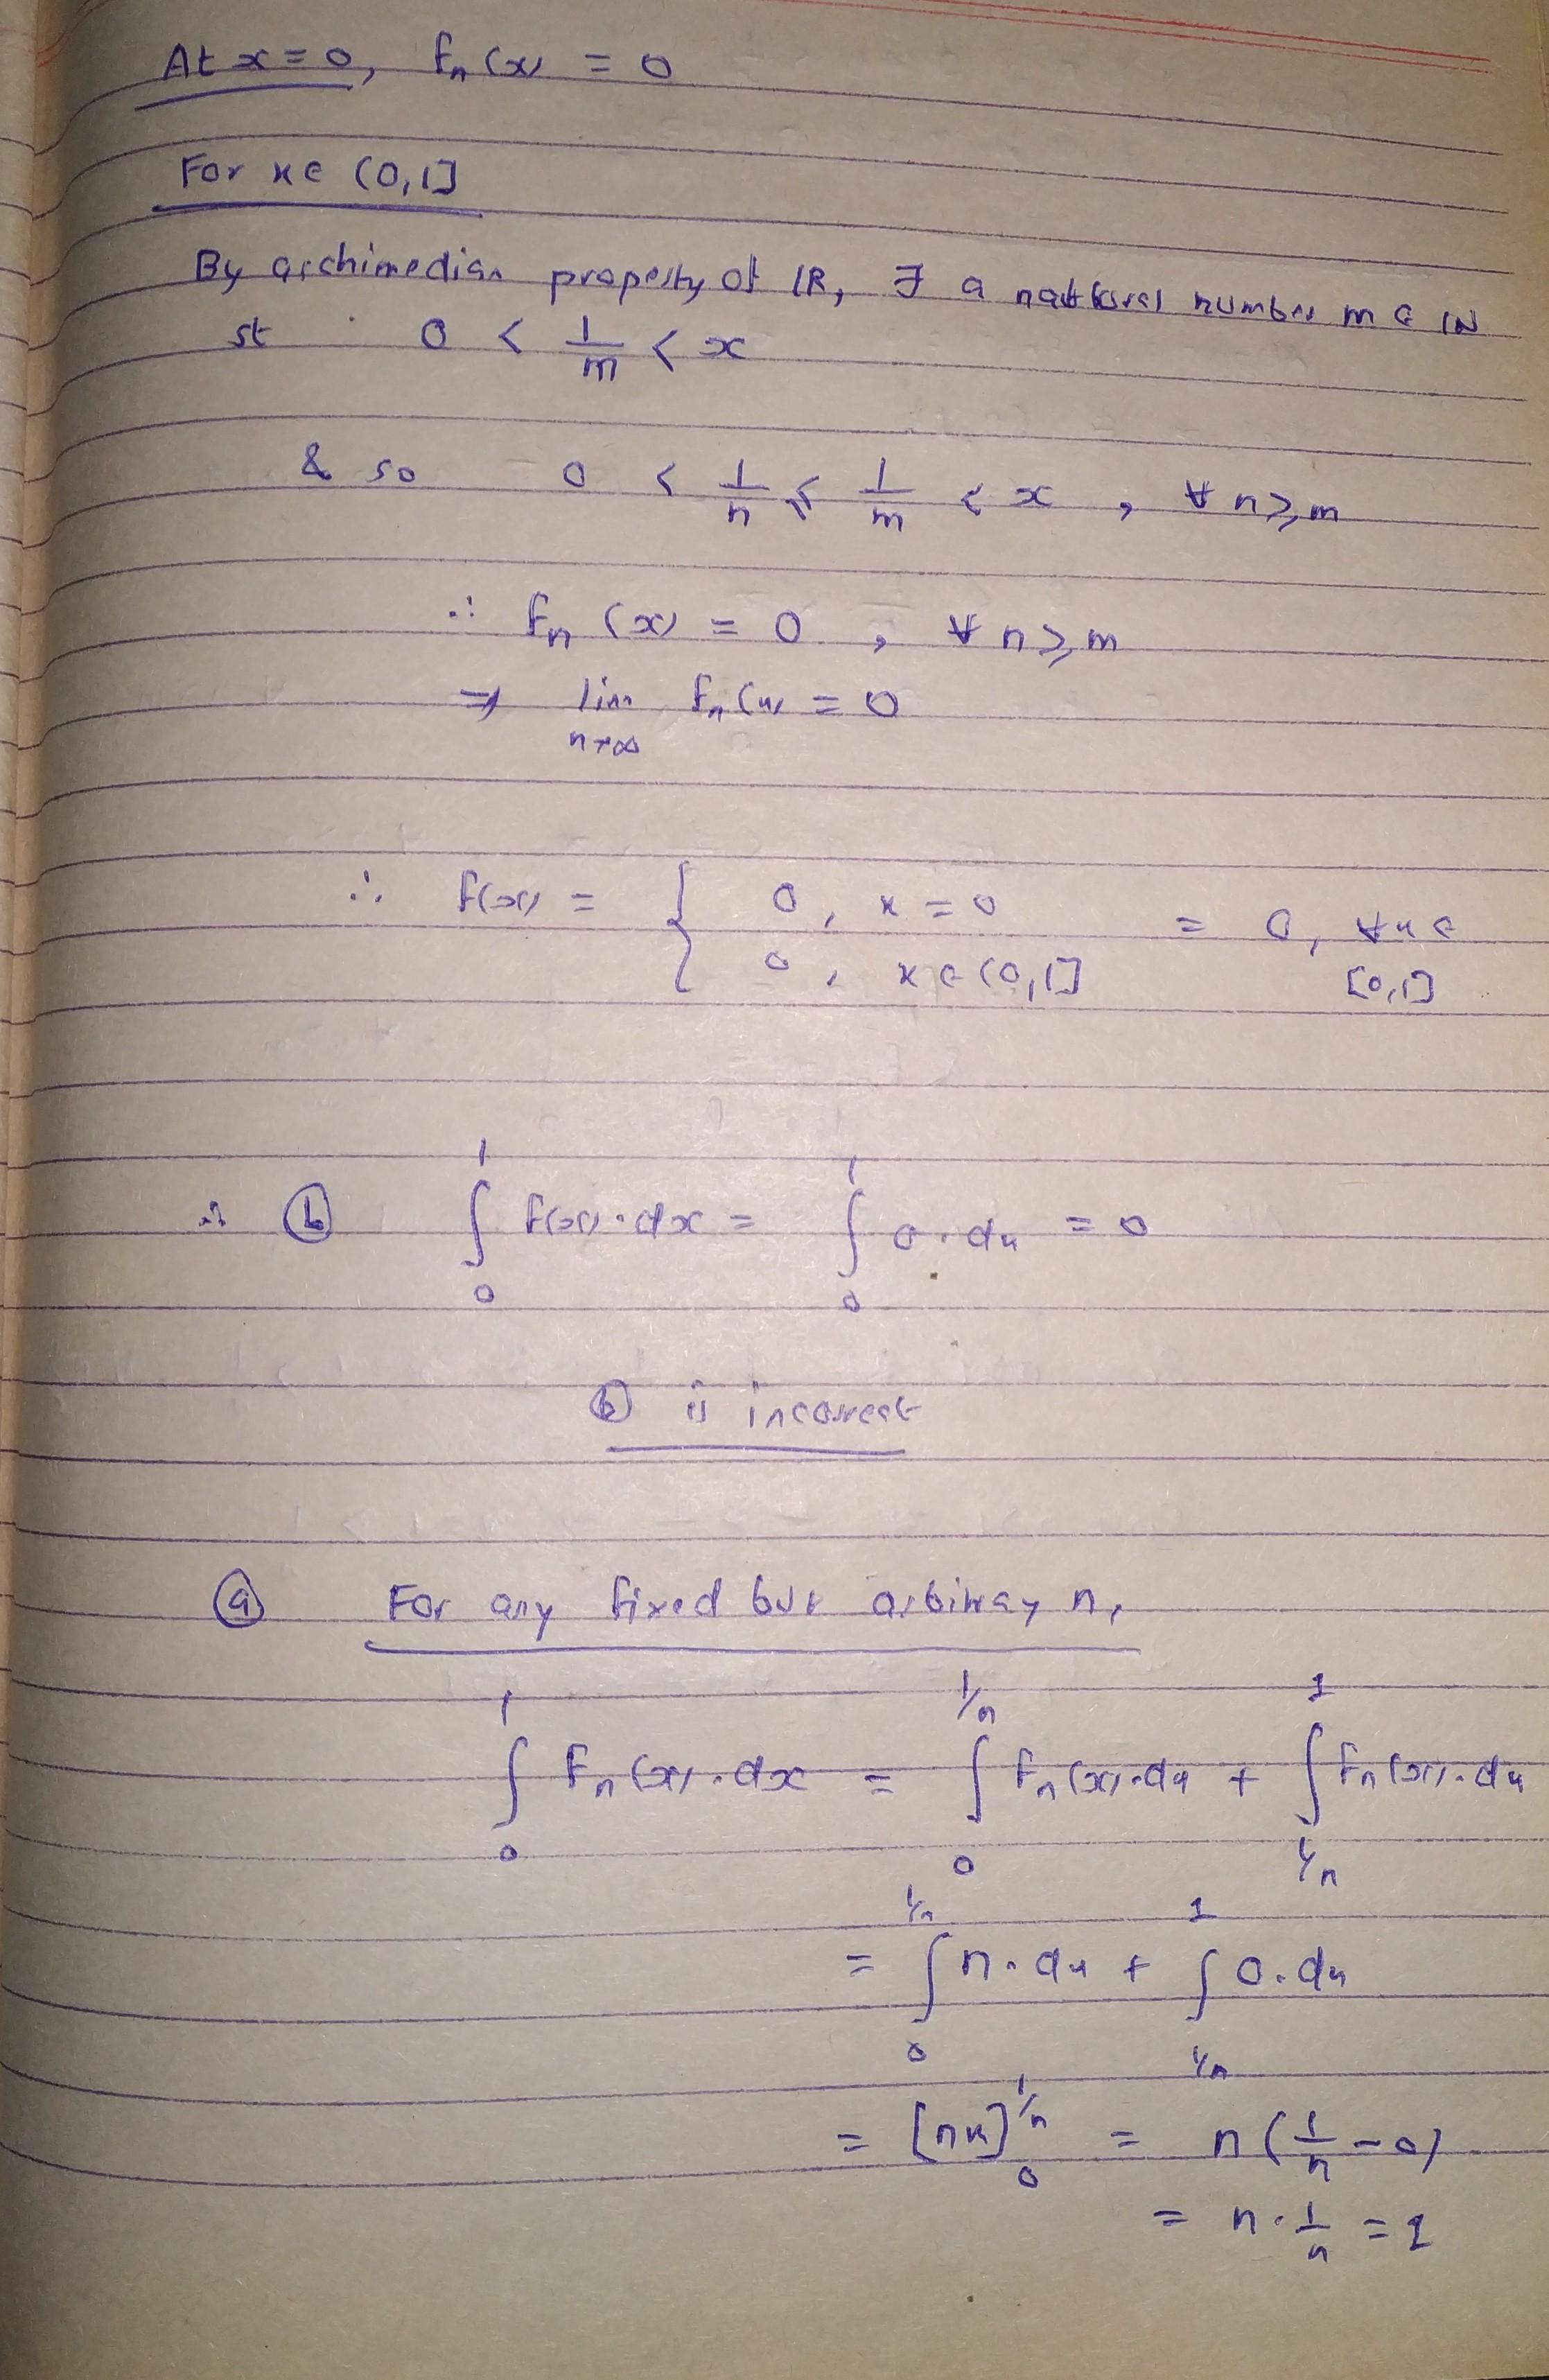 At x = 0, fn(x) = 0
For x ∈ (0,1]
By archimedian property of IR, ∃ a natural number m ∈ IN
st 0 < 1/m < x
& so 0 < 1/n ≤ 1/m < x, ∀ n ≥ m
∴ fn(x) = 0, ∀ n ≥ m
⇒ lim n→∞ fn(x) = 0
∴ f(x) = { 0, x = 0 ; 0, x ∈ (0,1] = 0, ∀ x ∈ [0,1]
∴ ⓑ ∫₀¹ f(x)·dx = ∫₀¹ 0·dx = 0
ⓑ is incorrect
ⓐ For any fixed but arbitrary n,
∫₀¹ fn(x)·dx = ∫₀^(1/n) fn(x)·dx + ∫_(1/n)^1 fn(x)·dx
= ∫₀^(1/n) n·dx + ∫_(1/n)^1 0·dx
= [nx]₀^(1/n) = n(1/n - 0)
= n·1/n = 1